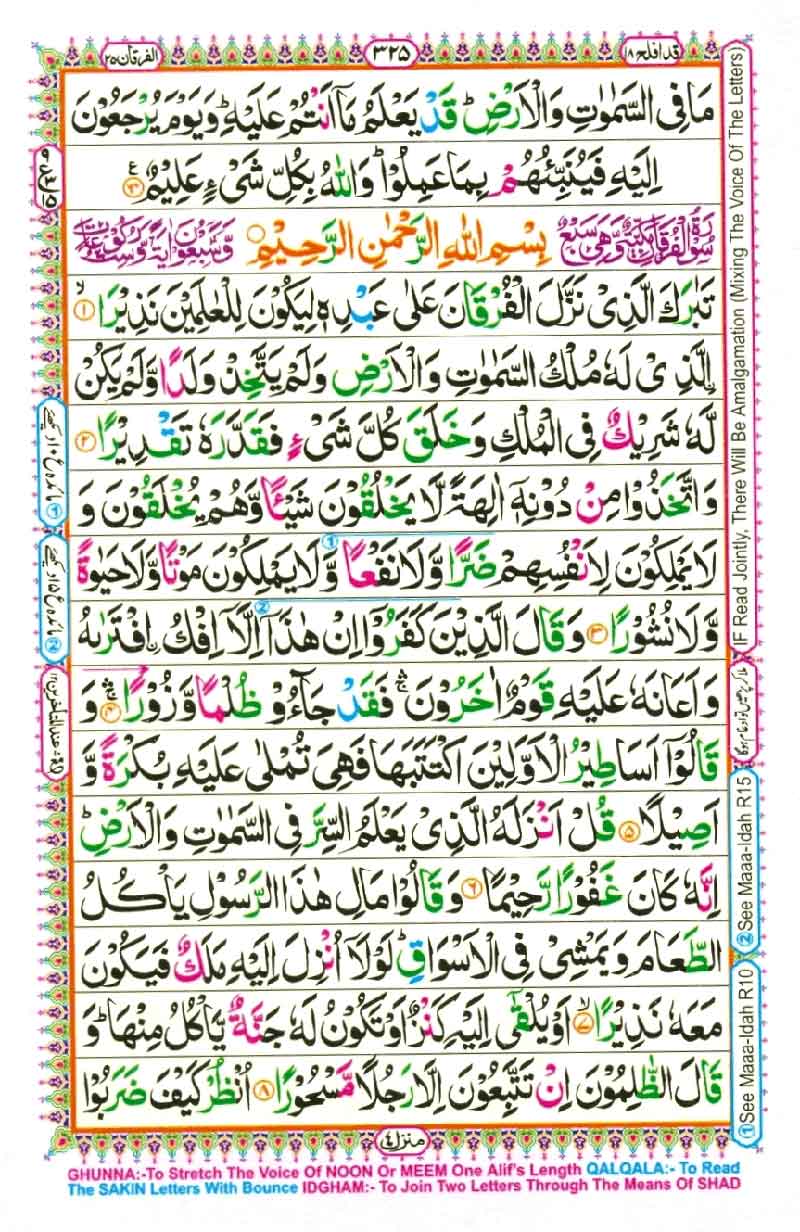 الفرقان ٢٥
٣٢٥
قد افلح ١٨
مَا فِى السَّمٰوٰتِ وَالْاَرْضِ ؕ قَدْ يَعْلَمُ مَاۤ اَنْتُمْ عَلَيْهِ ؕ وَيَوْمَ يُرْجَعُوْنَ
اِلَيْهِ فَيُنَبِّئُهُمْ بِمَا عَمِلُوْا ؕ وَاللّٰهُ بِكُلِّ شَىْءٍ عَلِيْمٌ
سُوْرَةُ الْفُرْقَانِ مَكِّيَّةٌ وَّهِىَ سَبْعٌ بِسْمِ اللّٰهِ الرَّحْمٰنِ الرَّحِيْمِ وَّسَبْعُوْنَ اٰيَةً وَّسِتُّ رُكُوْعَاتٍ
تَبٰرَكَ الَّذِىْ نَزَّلَ الْفُرْقَانَ عَلٰى عَبْدِهٖ لِيَكُوْنَ لِلْعٰلَمِيْنَ نَذِيْرًا ۙ ﴿١﴾
اۨلَّذِىْ لَهٗ مُلْكُ السَّمٰوٰتِ وَالْاَرْضِ وَلَمْ يَتَّخِذْ وَلَدًا وَّلَمْ يَكُنْ
لَّهٗ شَرِيْكٌ فِى الْمُلْكِ وَخَلَقَ كُلَّ شَىْءٍ فَقَدَّرَهٗ تَقْدِيْرًا ﴿٢﴾
وَاتَّخَذُوْا مِنْ دُوْنِهٖۤ اٰلِهَةً لَّا يَخْلُقُوْنَ شَيْـًٔا وَّهُمْ يُخْلَقُوْنَ وَ
لَا يَمْلِكُوْنَ لِاَنْفُسِهِمْ ضَرًّا وَّلَا نَفْعًا وَّلَا يَمْلِكُوْنَ مَوْتًا وَّلَا حَيٰوةً
وَّلَا نُشُوْرًا ﴿٣﴾ وَقَالَ الَّذِيْنَ كَفَرُوْۤا اِنْ هٰذَاۤ اِلَّاۤ اِفْكُ اۨفْتَرٰٮهُ
وَاَعَانَهٗ عَلَيْهِ قَوْمٌ اٰخَرُوْنَ ۛۚ فَقَدْ جَآءُوْ ظُلْمًا وَّزُوْرًا ۛۚ ﴿٤﴾ وَ
قَالُوْۤا اَسَاطِيْرُ الْاَوَّلِيْنَ اكْتَتَبَهَا فَهِىَ تُمْلٰى عَلَيْهِ بُكْرَةً وَّ
اَصِيْلًا ﴿٥﴾ قُلْ اَنْزَلَهُ الَّذِىْ يَعْلَمُ السِّرَّ فِى السَّمٰوٰتِ وَالْاَرْضِ ؕ
اِنَّهٗ كَانَ غَفُوْرًا رَّحِيْمًا ﴿٦﴾ وَقَالُوْا مَالِ هٰذَا الرَّسُوْلِ يَاْكُلُ
الطَّعَامَ وَيَمْشِىْ فِى الْاَسْوَاقِ ؕ لَوْلَاۤ اُنْزِلَ اِلَيْهِ مَلَكٌ فَيَكُوْنَ
مَعَهٗ نَذِيْرًا ۙ ﴿٧﴾ اَوْ يُلْقٰٓى اِلَيْهِ كَنْزٌ اَوْ تَكُوْنُ لَهٗ جَنَّةٌ يَّاْكُلُ مِنْهَا ؕ وَ
قَالَ الظّٰلِمُوْنَ اِنْ تَتَّبِعُوْنَ اِلَّا رَجُلًا مَّسْحُوْرًا ﴿٨﴾ اُنْظُرْ كَيْفَ ضَرَبُوْا
منزل ٤
GHUNNA:-To Stretch The Voice Of NOON Or MEEM One Alif's Length QALQALA:- To Read
The SAKIN Letters With Bounce IDGHAM:- To Join Two Letters Through The Means Of SHAD
IF Read Jointly, There Will Be Amalgamation (Mixing The Voice Of The Letters)
② See Maaa-Idah R15
① See Maaa-Idah R10
① مائدہ ع ١٠ دیکھئے
② مائدہ ع ١٥ دیکھئے